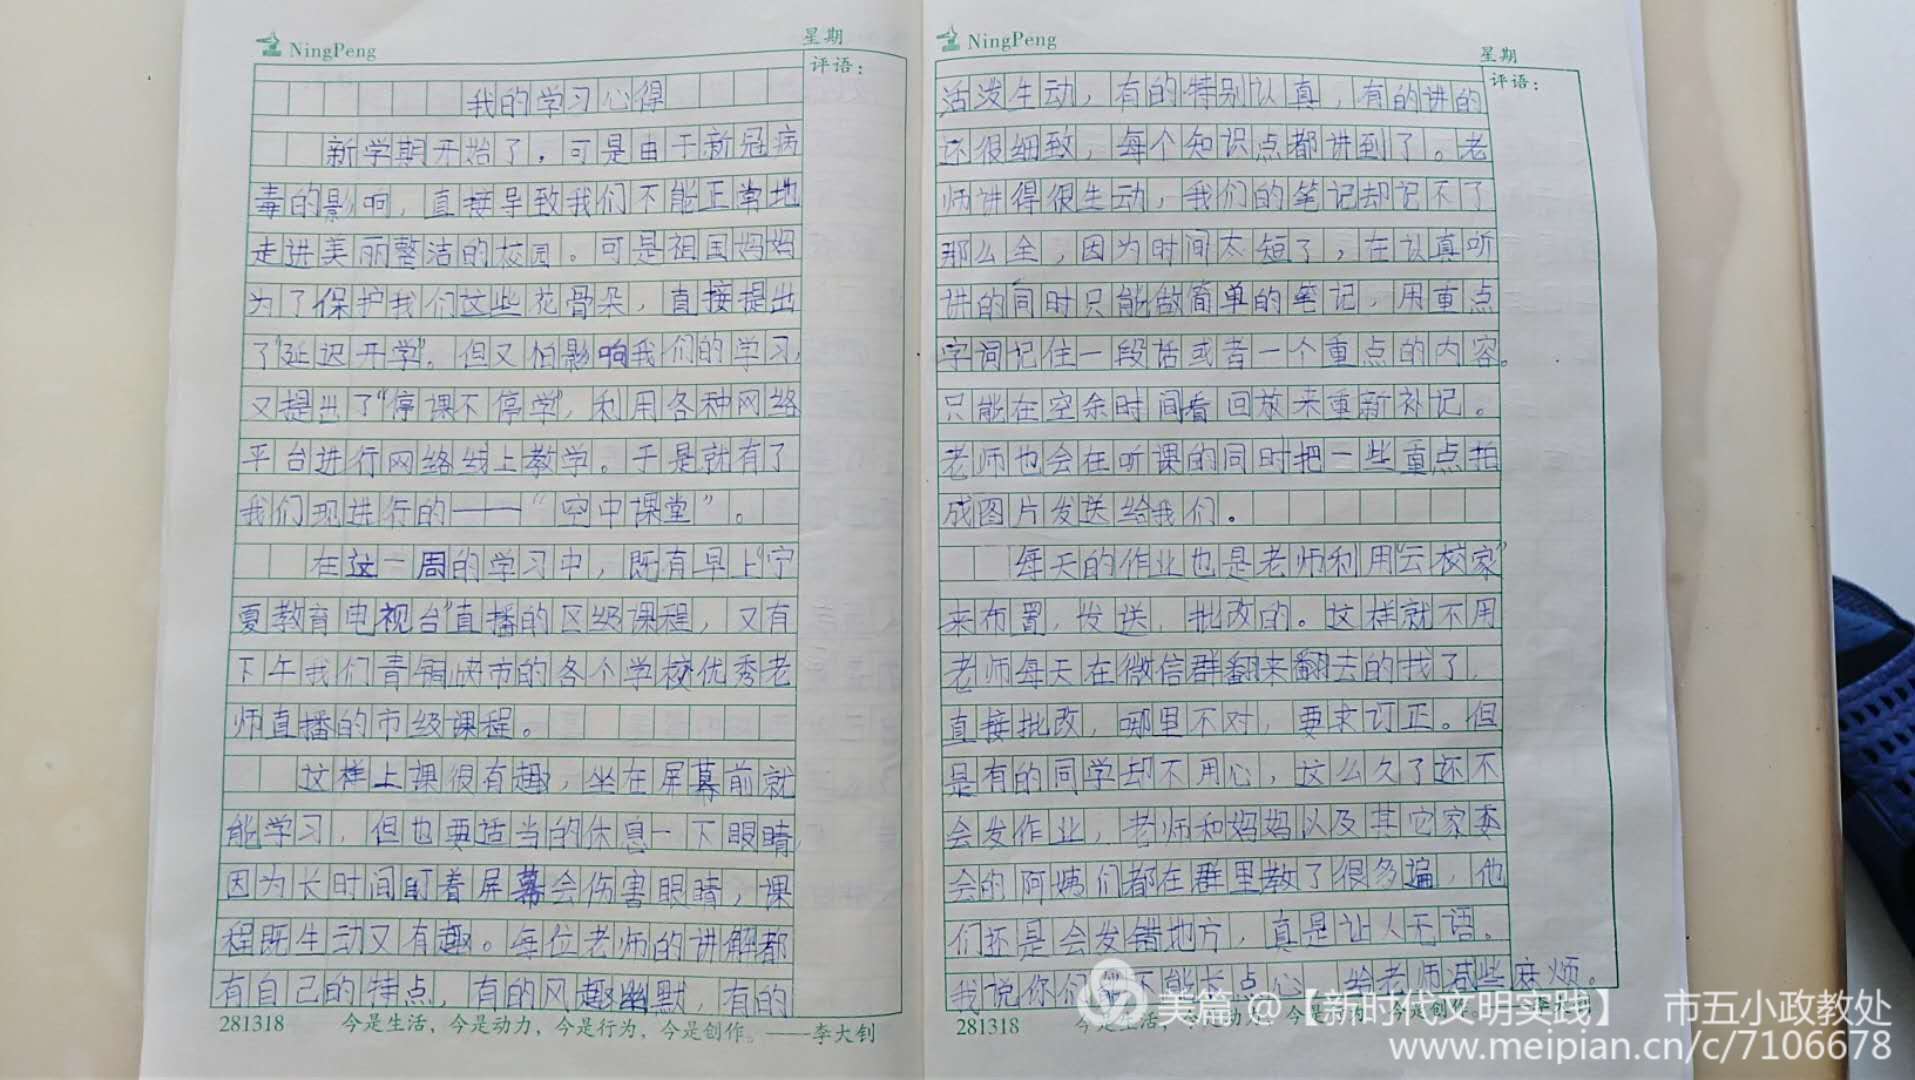 NingPeng
星期
评语：
我的学习心得
新学期开始了，可是由于新冠病
毒的影响，直接导致我们不能正常地
走进美丽整洁的校园。可是祖国妈妈
为了保护我们这些花骨朵，直接提出
了“延迟开学”。但又怕影响我们的学习，
又提出了“停课不停学”，利用各种网络
平台进行网络线上教学。于是就有了
我们现进行的——“空中课堂”。
在这一周的学习中，既有早上“宁
夏教育电视台”直播的区级课程，又有
下午我们青铜峡市的各个学校优秀老
师直播的市级课程。
这样上课很有趣，坐在屏幕前就
能学习，但也要适当的休息一下眼睛，
因为长时间盯着屏幕会伤害眼睛，课
程既生动又有趣。每位老师的讲解都
有自己的特点，有的风趣幽默，有的
281318 今是生活，今是动力，今是行为，今是创作。——李大钊
NingPeng
星期
评语：
活泼生动，有的特别认真，有的讲的
还很细致，每个知识点都讲到了。老
师讲得很生动，我们的笔记却记不了
那么全，因为时间太短了，在认真听
讲的同时只能做简单的笔记，用重点
字词记住一段话或者一个重点的内容。
只能在空余时间看回放来重新补记。
老师也会在听课的同时把一些重点拍
成图片发送给我们。
每天的作业也是老师利用“云校家”
来布置，发送，批改的。这样就不用
老师每天在微信群翻来翻去的找了，
直接批改，哪里不对，要求订正。但
是有的同学却不用心，这么久了还不
会发作业，老师和妈妈以及其它家委
会的阿姨们都在群里教了很多遍，他
们还是会发错地方，真是让人无语。
我说你们就不能长点心，给老师减些麻烦。
281318 今是生活，今是动力，今是行为，今是创作。
美篇 @【新时代文明实践】 市五小政教处
www.meipian.cn/c/7106678